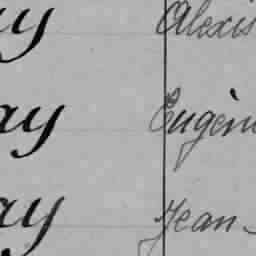 ay Alexis
ay Eugène
ay Jean-